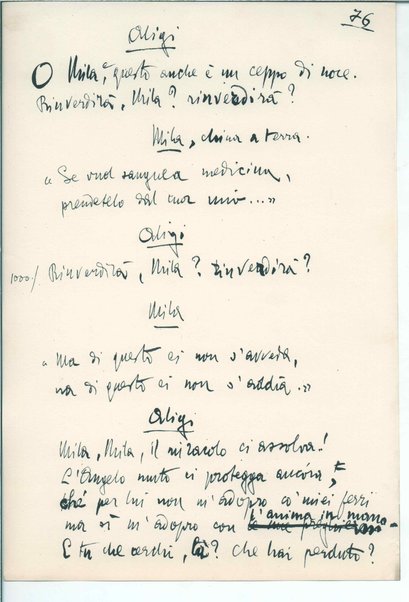 76
Aligi
O Mila, questo anche è un ceppo di noce.
Rinverdirà, Mila? rinverdirà?
Mila, china a terra.
« Se vuol sanguea medicina,
prendetelo dal cuor mio... »
Aligi
1000/. Rinverdirà, Mila? rinverdirà?
Mila
« Ma di questo ei non s'avvide,
ma di questo ei non s'addià. »
Aligi
Mila, Mila, il miracolo ci assolva!
L'Angelo muto ci protegga ancora,
ché per lui non m'adopro co' miei ferri
l'anima in mano.
ma sì m'adopro con le mie preghiere
E tu che cerchi, là? che hai perduto?